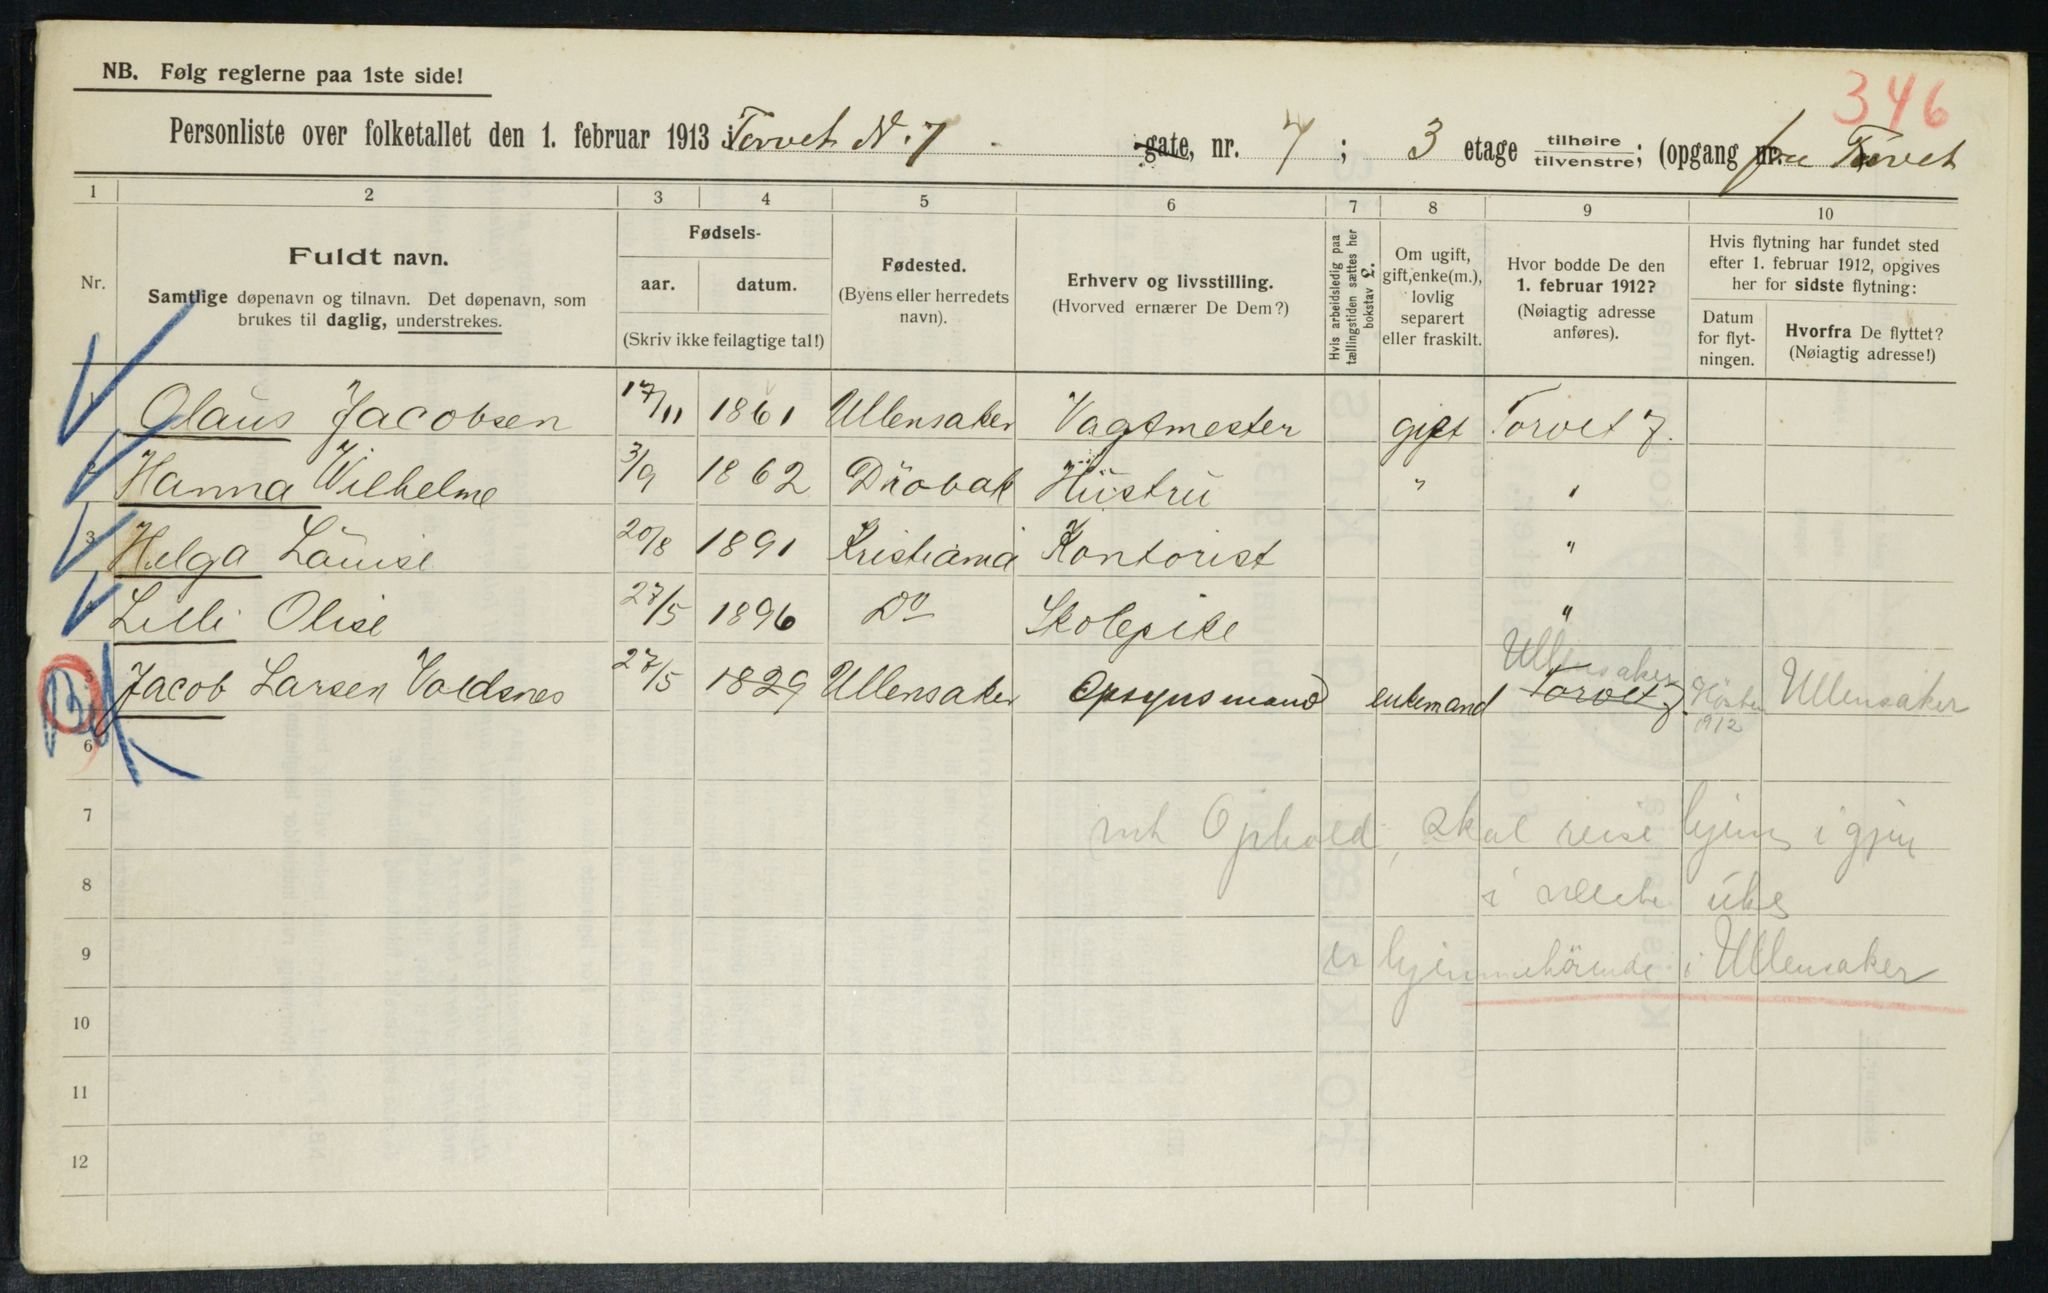 346
NB. Følg reglerne paa 1ste side!
Personliste over folketallet den 1. februar 1913 i Torvet N. 7 gate, nr. 7 ; 3 etage tilhøire tilvenstre; (opgang nr. fra Torvet
1 2 3 4 5 6 7 8 9 10
Nr.
Fuldt navn.
Samtlige døpenavn og tilnavn. Det døpenavn, som
brukes til daglig, understrekes.
Fødsels-
aar. datum.
(Skriv ikke feilagtige tal!)
Fødested.
(Byens eller herredets
navn).
Erhverv og livsstilling.
(Hvorved ernærer De Dem?)
Hvis arbeidsledig paa
tællingstiden sættes her
bokstav £.
Om ugift,
gift, enke(m.),
lovlig
separert
eller fraskilt.
Hvor bodde De den
1. februar 1912?
(Nøiagtig adresse
anføres).
Hvis flytning har fundet sted
efter 1. februar 1912, opgives
her for sidste flytning:
Datum
for flyt-
ningen.
Hvorfra De flyttet?
(Nøiagtig adresse!)
1 Olaus Jacobsen 17/11 1861 Ullensaker Vagtmester gift Torvet 7.
2 Hanna Wilhelme 3/9 1862 Dröbak Hustru " "
3 Helga Louise 20/8 1891 Kristiania Kontorist "
4 Lilli Olise 27/5 1896 Do Skolepike "
Ullensaker
5 Jacob Larsen Voldsnes 27/5 1829 Ullensaker Opsynsmand enkemand Torvet 7 Hösten 1912 Ullensaker
6
7 Ophold, skal reise hjem igjen
8 i uke
9 er hjemmehörende i Ullensaker
10
11
12